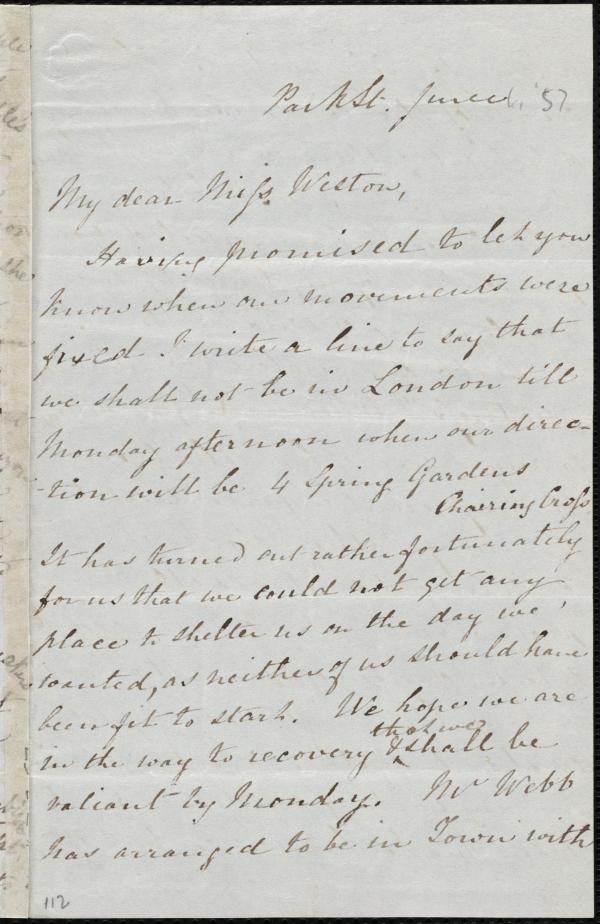 Park St. June 1. '57
My dear Miss Weston,
Having promised to let you
know when our movements were
fixed I write a line to say that
we shall not be in London till
Monday afternoon when our direc-
-tion will be 4 Spring Gardens
Chairing Cross
It has turned out rather fortunately
for us that we could not get any
place to shelter us on the day we
wanted, as neither of us should have
been fit to start. We hope we are
in the way to recovery & that we shall be
valiant by Monday. Mr Webb
has arranged to be in Town with
112